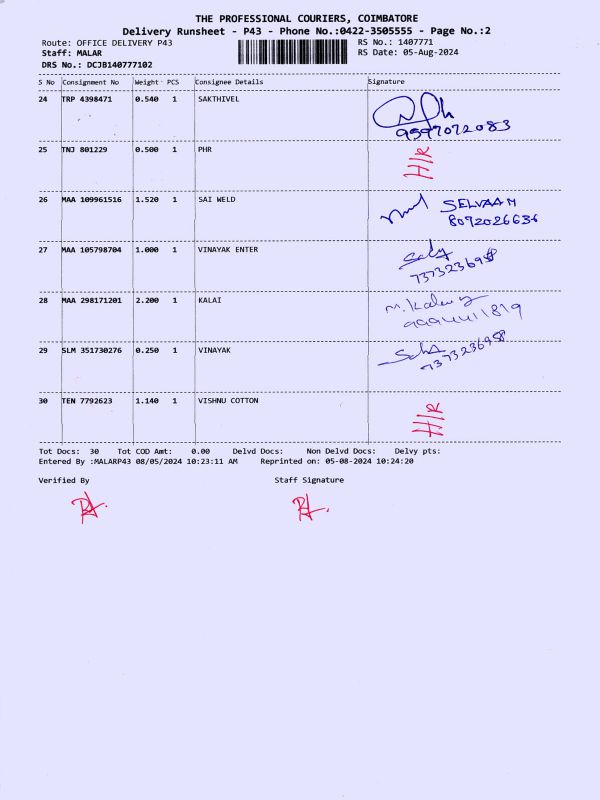 THE PROFESSIONAL COURIERS, COIMBATORE
Delivery Runsheet - P43 - Phone No.:0422-3505555 - Page No.:2
Route: OFFICE DELIVERY P43 RS No.: 1407771
Staff: MALAR RS Date: 05-Aug-2024
DRS No.: DCJB140777102
S No Consignment No Weight PCS Consignee Details Signature
24 TRP 4398471 0.540 1 SAKTHIVEL
9597072083
25 TNJ 801229 0.500 1 PHR
26 MAA 109961516 1.520 1 SAI WELD SELVAAM
8092026636
27 MAA 105798704 1.000 1 VINAYAK ENTER
7373236958
28 MAA 298171201 2.200 1 KALAI
9994411819
29 SLM 351730276 0.250 1 VINAYAK
7373236958
30 TEN 7792623 1.140 1 VISHNU COTTON
Tot Docs: 30 Tot COD Amt: 0.00 Delvd Docs: Non Delvd Docs: Delvy pts:
Entered By :MALARP43 08/05/2024 10:23:11 AM Reprinted on: 05-08-2024 10:24:20
Verified By Staff Signature